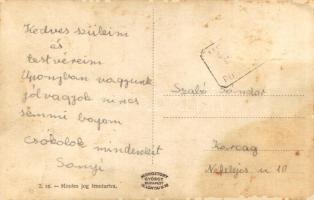 Kedves szüleim
és
testvéreim
Uponyban vagyunk
jól vagyok nincs
semmi bajom
Csókolok mindenkit
Sanyi
Szabó Sándor
Karcag
Nefelejcs u 10
2. sz. — Minden jog fenntartva.
MONOSTORY
GYÖRGY
BUDAPEST